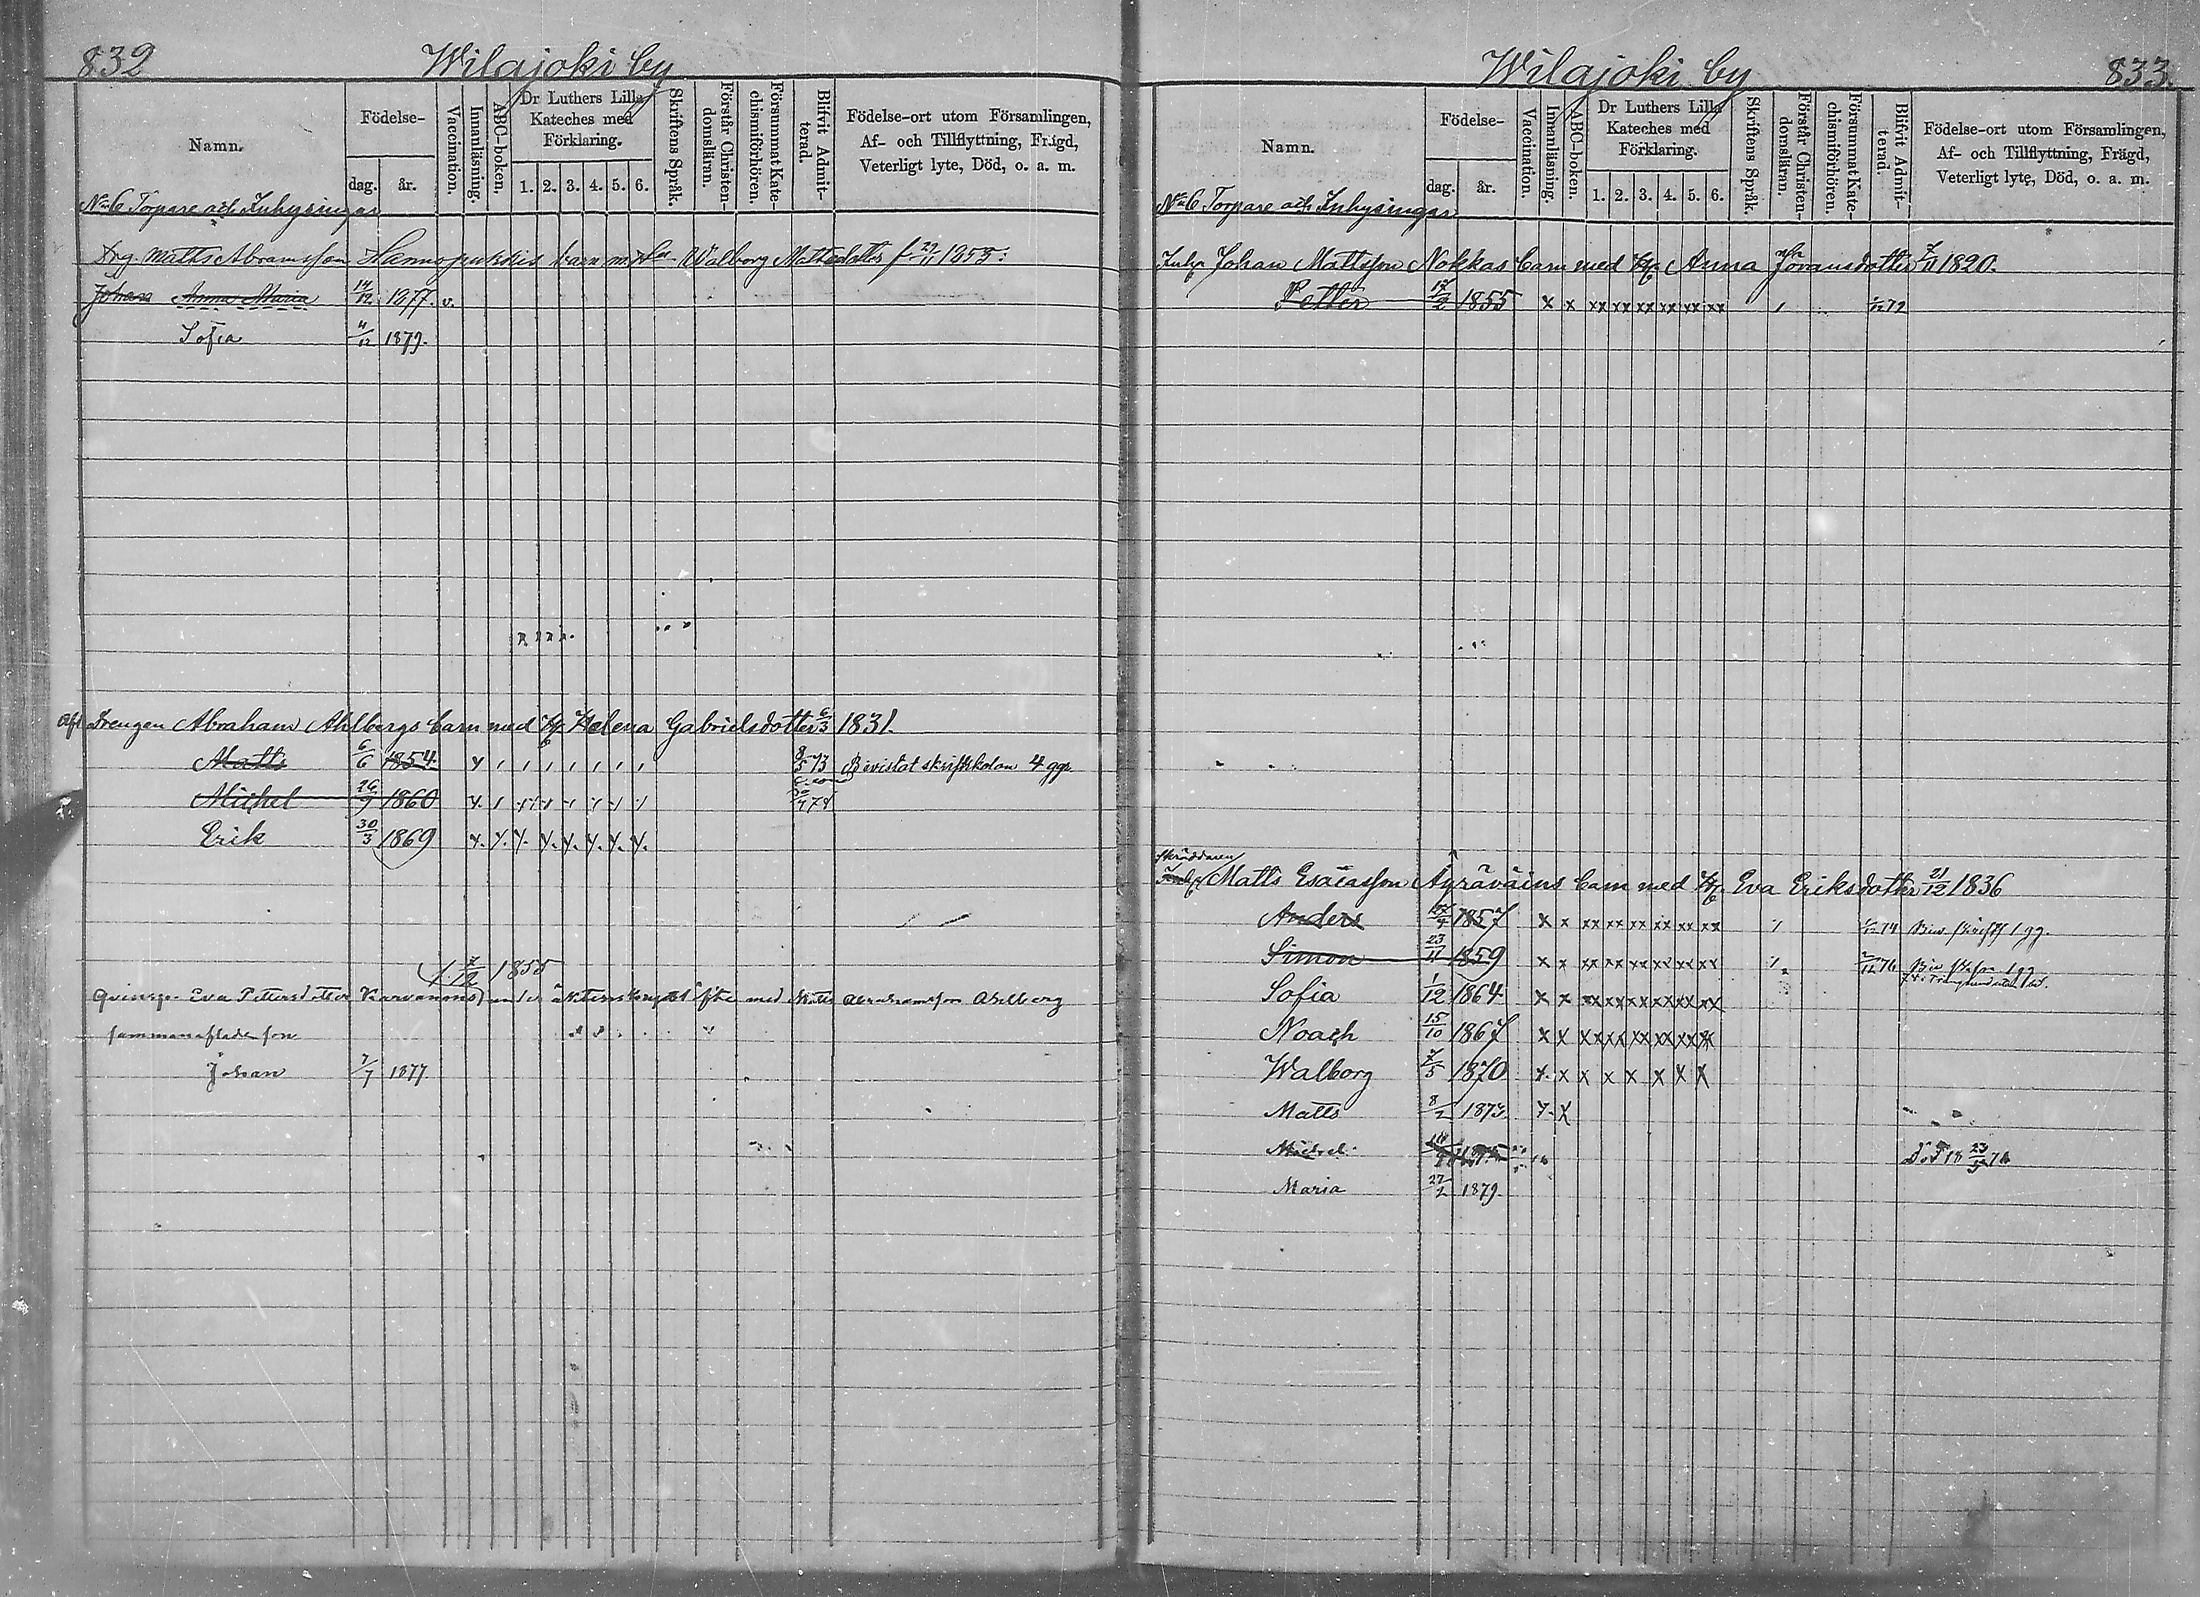 832
Wilajoki by
Namn.
Födelse-
dag.
år.
Vaccination.
Innanläsning.
ABC-boken.
Dr Luthers Lilla
Kateches med
Förklaring.
1. 2. 3. 4. 5. 6.
Skriftens Språk.
Förstår Christen-
domsläran.
Försummat Kate-
chismiförhören.
Blifvit Admit-
terad.
Födelse-ort utom Församlingen,
Af- och Tillflyttning, Frägd,
Veterligt lyte, Död, o. a. m.
No 6 Torpare och Inhysingar
Drg Matts Abramsson barn m Walborg Mattsdotter f 29/11 1853:
Johan Anna Maria 14/12 1877. v.
Sofia 4/12 1879.
Afl. Drengen Abraham Ahlbergs barn med Helena Gabrielsdotter 6/3 1831.
Matts 6/6 1854 8/5 73 Bevistat skriftskolan 4 ggr.
Michel 26/9 1860
Erik 30/3 1869
1855
Qvinsp. Eva Pettersdotter Karvanens under äktenskaps löfte med Matts Abrahamsson Ahlberg
sammanaflade son
Johan 7/7 1877
Wilajoki by
833.
Namn.
Födelse-
dag.
år.
Vaccination.
Innanläsning.
ABC-boken.
Dr Luthers Lilla
Kateches med
Förklaring.
1. 2. 3. 4. 5. 6.
Skriftens Språk.
Förstår Christen-
domsläran.
Försummat Kate-
chismiförhören.
Blifvit Admit-
terad.
Födelse-ort utom Församlingen,
Af- och Tillflyttning, Frägd,
Veterligt lyte, Död, o. a. m.
No 6 Torpare och Inhysingar
Inhys Johan Mattsson Nokkas barn med Anna Göransdotter 7/11 1820.
Petter 17/2 1855 x x xx xx xx xx xx xx
Skräddaren
Matts Esaiasson Äyräväins barn med Eva Eriksdotter 21/12 1836
Anders 1857 x x xx xx xx xx xx xx
Simon 23/11 1859 x x xx xx xx xx xx xx
Sofia 1/12 1864 x x xx xx xx xx xx xx
Noach 15/10 1867 x x xx xx xx xx xx xx
Walborg 7/5 1870 x x x x x x x
Matts 8/2 1873
Michel Död 18 23/5 76
Maria 27/2 1879.